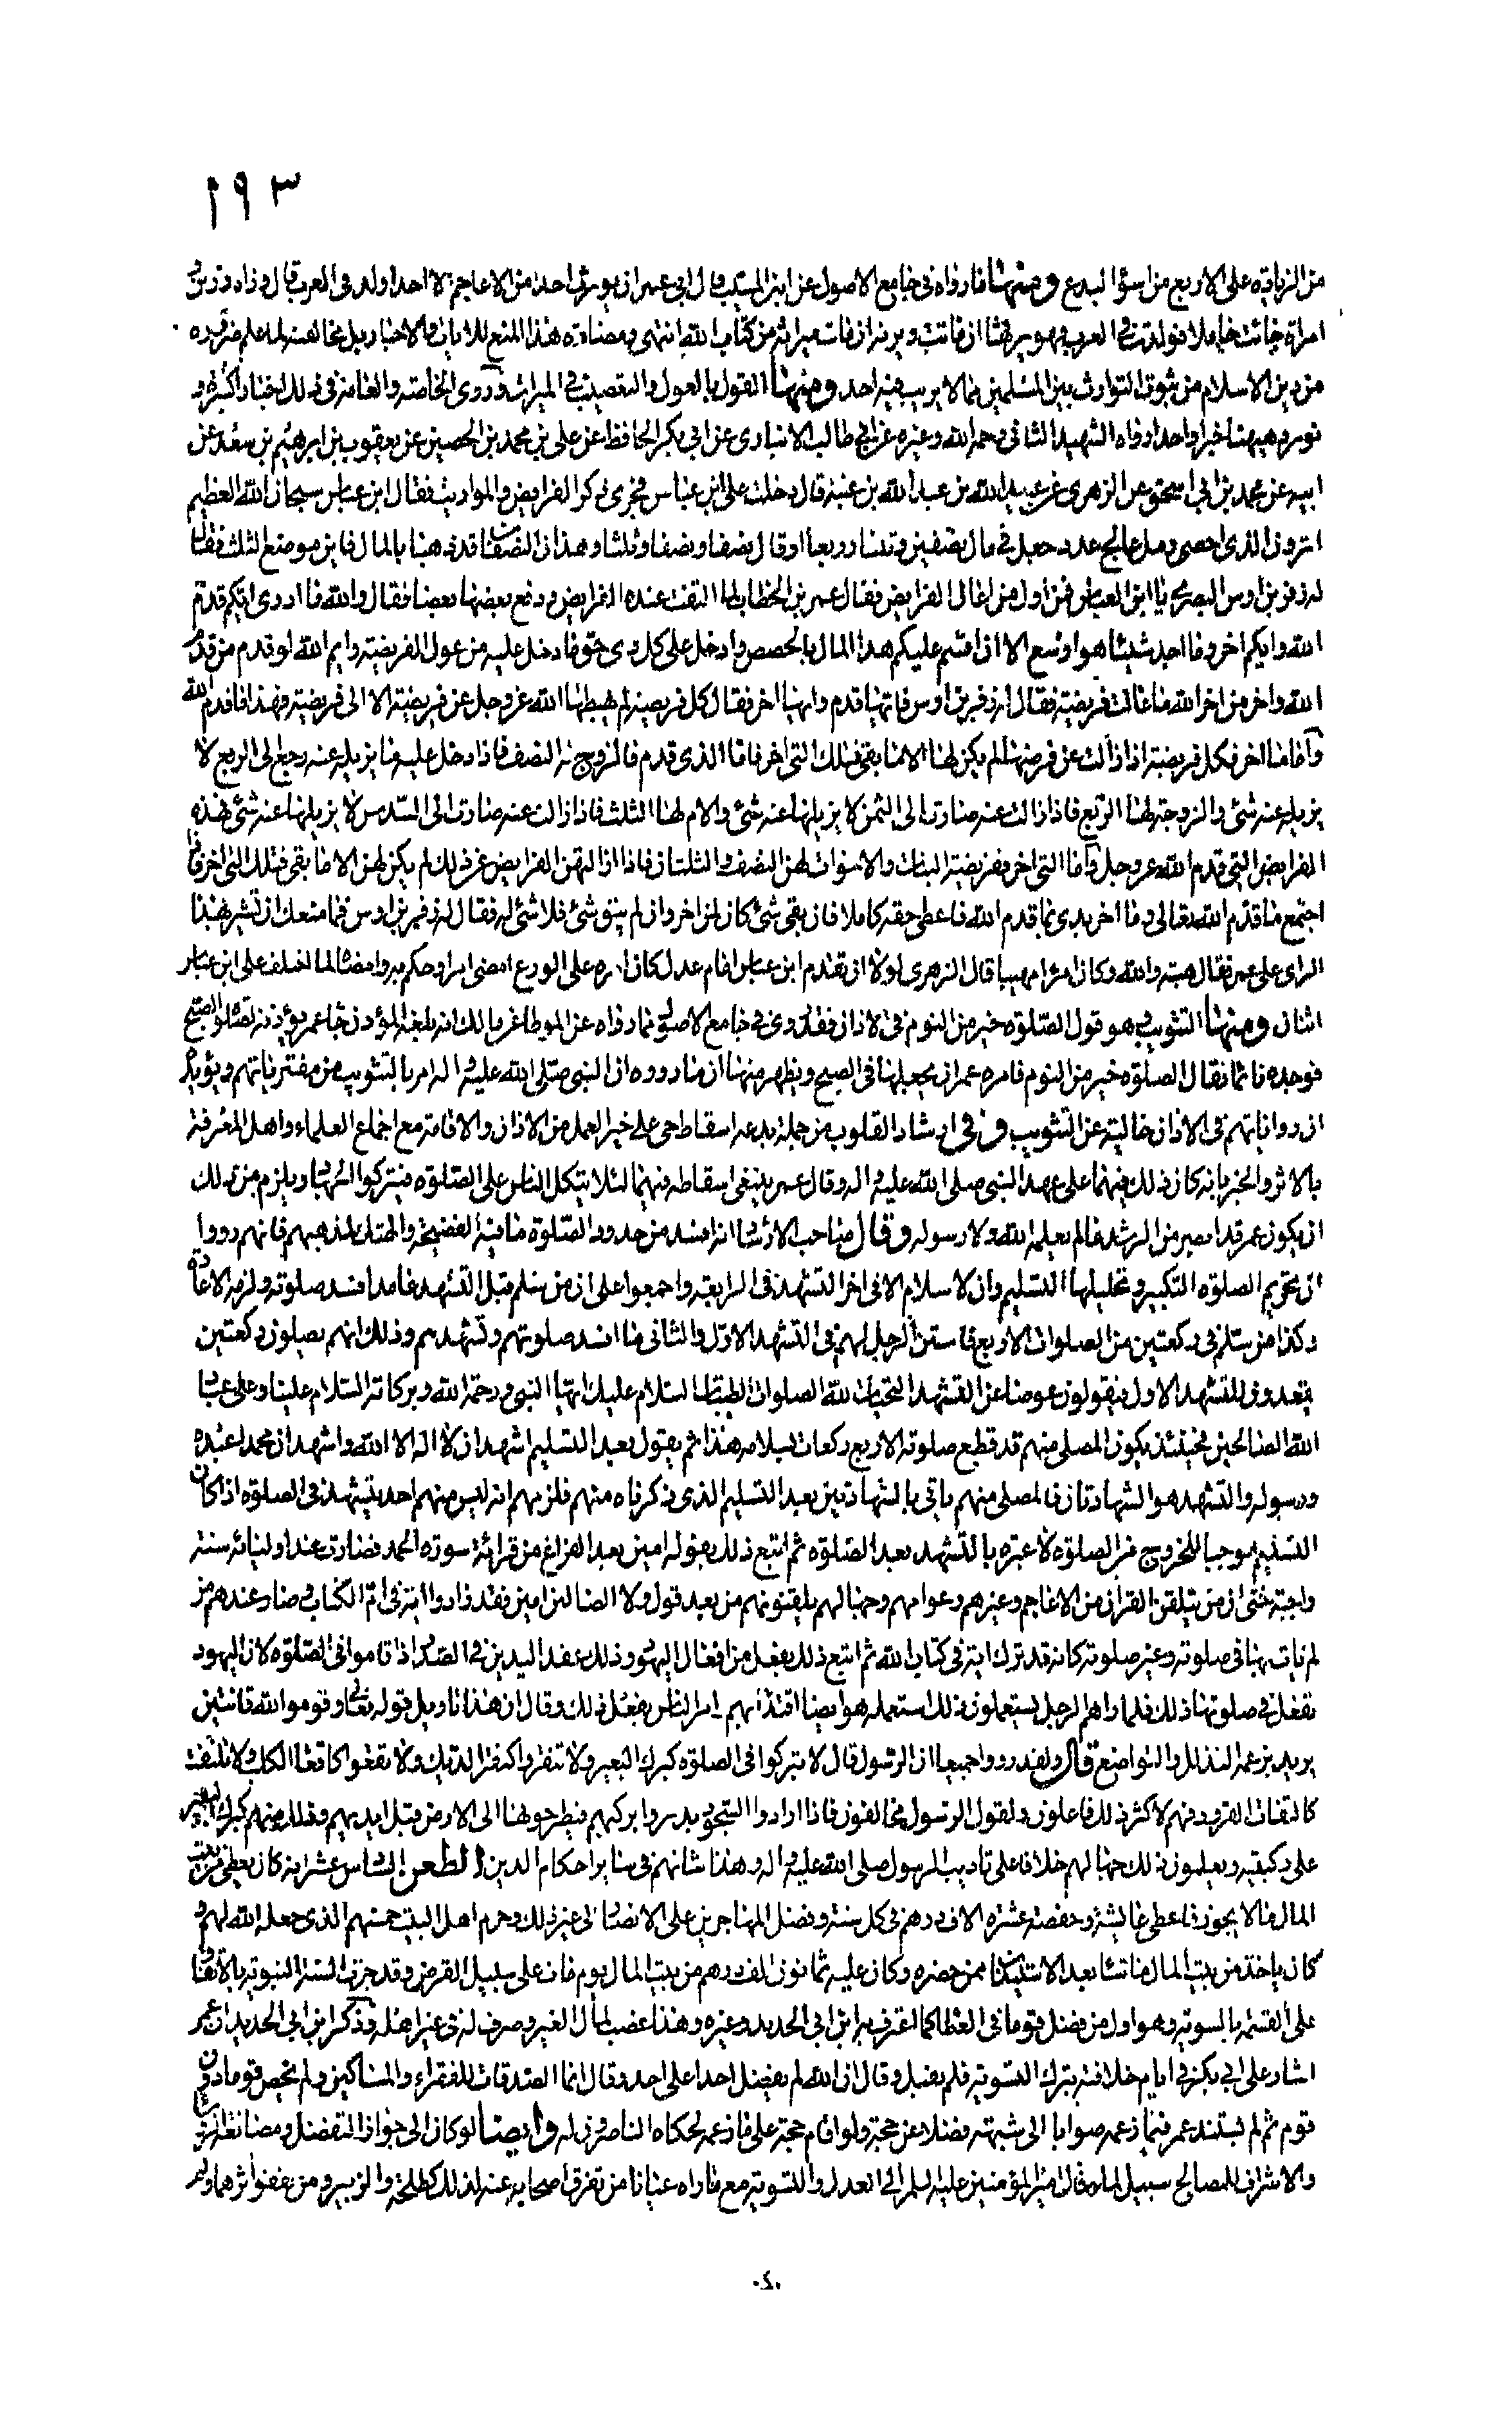 ٢٩٣
من الزيادة على الاربع من اسوء البدع ومنها ما رواه فى جامع الاصول عن ابن المسيب قال ابى عمر ان يورث احدا من الاعاجم الا احدا ولد فى العرب قال وزاد رزين
امراة جائت حاملا فولدت فى العرب فهو يرثها ان ماتت وترثه ان مات ميراثه من كتاب الله انتهى ومضادة هذا المنع للايات والاخبار بل مخالفته لما علم ضرورة
من دين الاسلام من ثبوت التوارث بين المسلمين مما لا يريب فيه احد ومنها القول بالعول والتعصيب فى الميراث وروى الخاصة والعامة فى ذلك اخبارا كثيرة
نورد هيهنا خبرا واحدا رواه الشهيد الثانى رحمه الله وغيره عن ابى طالب الانبارى عن ابى بكر الحافظ عن على بن محمد بن الحصين عن يعقوب بن ابرهيم بن سعد عن
ابيه عن محمد بن ابى اسحق عن الزهرى عن عبيد الله بن عبد الله بن عتبة قال دخلت على ابن عباس فجرى ذكر الفرايض والمواريث فقال ابن عباس سبحان الله العظيم
اترون الذى احصى رمل عالج عددا جعل فى مال نصفين وثلثا وربعا او قال نصفا ونصفا وثلثا وهذان النصفان قد ذهبا بالمال فاين موضع الثلث فقال
له زفر بن اوس البصرى يا ابن العباس فمن اول من اعال الفرايض فقال عمر بن الخطاب لما التفت عنده الفرايض ودفع بعضها بعضا فقال والله ما ادرى ايكم قدم
الله وايكم اخر وما اجد شيئا هو اوسع الا ان اقسم عليكم هذا المال بالحصص وادخل على كل ذى حق ما دخل عليه من عول الفريضة وايم الله لو قدم من قدم
الله واخر من اخر الله ما عالت فريضة فقال له زفر بن اوس فايتها قدم وايتها اخر فقال كل فريضة لم يهبطها الله عز وجل عن فريضة الا الى فريضة فهذا ما قدم الله
واما ما اخر فكل فريضة اذا زالت عن فرضها لم يكن لها الا ما بقى فتلك التى اخر فاما الذى قدم فالزوج له النصف فاذا دخل عليه ما يزيله عنه رجع الى الربع لا
يزيله عنه شئ والزوجة لها الربع فاذا زالت عنه صارت الى الثمن لا يزيلها عنه شئ والام لها الثلث فاذا زالت عنه صارت الى السدس لا يزيلها عنه شئ فهذه
الفرايض التى قدم الله عز وجل واما التى اخر ففريضة البنات والاخوات لهن النصف والثلثان فاذا ازالتهن الفرايض عن ذلك لم يكن لهن الا ما بقى فتلك التى اخر فاذا
اجتمع ما قدم الله تعالى وما اخر بدئ بما قدم الله فاعطى حقه كاملا فان بقى شئ كان لمن اخر وان لم يبق شئ فلا شئ له فقال له زفر بن اوس فما منعك ان تشير بهذا
الراى على عمر فقال هبته والله وكان امرا مهيبا قال الزهرى لولا ان تقدم ابن عباس امام عدل كان امره على الورع امضى امرا وحكم به وامضى لما اختلف على ابن عباس
اثنان ومنها التثويب وهو قول الصلوة خير من النوم فى الاذان فقد روى فى جامع الاصول مما رواه عن الموطا عن مالك انه بلغه ان المؤذن جاء عمر يؤذنه لصلوة الصبح
فوجده نائما فقال الصلوة خير من النوم فامره عمر ان يجعلها فى الصبح ويظهر منها ان ما رووه ان النبى صلى الله عليه واله امر بالتثويب من مفترياتهم ويؤيد
ان رواياتهم فى الاذان خالية عن التثويب وفى ارشاد القلوب من جملة بدعه اسقاط حى على خير العمل من الاذان والاقامة مع اجماع العلماء واهل المعرفة
بالاثر والخبر بانه كان ذلك فيهما على عهد النبى صلى الله عليه واله وقال عمر ينبغى اسقاطه فيهما لئلا يتكل الناس على الصلوة فيتركوا الجهاد ويلزم من ذلك
ان يكون عمر قد ابصر من الرشد ما لم يعلمه الله ولا رسوله وقال صاحب الارشاد انه افسد من حدود الصلوة ما فيه الفضيحة والهتك لمذهبهم فانهم رووا
ان تحريم الصلوة التكبير وتحليلها التسليم وان لا سلام الا فى اخر التشهد فى الرابعة واجمعوا على ان من سلم قبل التشهد عامدا فسد صلوته ولزمه الاعادة
وكذا من سلم فى ركعتين من الصلوات الاربع فاستن الرجل لهم فى التشهد الاول والثانى ما افسد صلوتهم وتشهدهم وذلك انهم يصلون ركعتين
يقعدون للتشهد الاول فيقولون عوضا عن التشهد التحيات لله الصلوات الطيبات السلام عليك ايها النبى ورحمة الله وبركاته السلام علينا وعلى عباد
الله الصالحين فحينئذ يكون المصلى منهم قد قطع صلوته الاربع ركعات بسلامه هذا ثم يقول بعد التسليم اشهد ان لا اله الا الله واشهد ان محمدا عبده
ورسوله والتشهد هو الشهادتان فالمصلى منهم ياتى بالشهادتين بعد التسليم الذى ذكرناه منهم فلزمهم انه ليس منهم احد يتشهد فى الصلوة اذا كان
التسليم موجبا للخروج من الصلوة لا عبرة بالتشهد بعد الصلوة ثم اتبع ذلك بقوله امين بعد الفراغ من قرائة سورة الحمد فصارت عند اوليائه سنة
واجبة حتى ان من يتلقن القران من الاعاجم وغيرهم وعوامهم وجهالهم يلقنونهم من بعد قول ولا الضالين امين فقد زادوا اية فى ام الكتاب وصار عندهم من
لم يات بها فى صلوته وغير صلوته كانه قد ترك اية فى كتاب الله ثم اتبع ذلك بفعل من افعال اليهود وذلك عقد اليدين فى الصدر اذا قاموا فى الصلوة لان اليهود
تفعل فى صلوتها ذلك فلما راهم الرجل يستعملون ذلك استعمله هو ايضا اقتداء بهم امر الناس بفعل ذلك وقال ان هذا تاويل قوله تعالى وقوموا لله قانتين
يريد بزعمه التذلل والتواضع قال ولقد رووا جميعا ان الرسول قال لا تبركوا فى الصلوة كبرك البعير ولا تنقروا كنقر الديك ولا تقعوا كاقعاء الكلب ولا تلتفتوا
كالتفات القرود فهم لاكثر ذلك فاعلون ولقول الرسول مخالفون فاذا ارادوا السجود بدروا بركبهم فيطرحونها الى الارض قبل ايديهم وذلك منهم كبرك البعير
على ركبتيه ويعلمون ذلك جهالهم خلافا على تاديب الرسول صلى الله عليه واله وهذا شانهم فى ساير احكام الدين الطعن السادس عشر انه كان يعطى من بيت
المال ما لا يجوز فاعطى عايشة وحفصة عشرة الاف درهم فى كل سنة وفضل المهاجرين على الانصار الى غير ذلك وحرم اهل البيت خمسهم الذى جعله الله لهم و
كان ياخذ من بيت المال ما شاء بعد الاستيذان ممن حضره وكان عليه ثمانون الف درهم من بيت المال يوم مات على سبيل القرض وقد جرت السنة النبوية بالاتفاق
على القسمة بالسوية وهو اول من فضل قوما فى العطاء كما اعترف به ابن ابى الحديد وغيره وهذا غصب لمال الغير وصرف له فى غير اهله وذكر ابن ابى الحديد ان عمر
اشار على ابى بكر فى ايام خلافته بترك التسوية فلم يقبل وقال ان الله لم يفضل احدا على احد وقال انما الصدقات للفقراء والمساكين ولم يخص قوما دون
قوم ثم لم يستند عمر فيما زعمه صوابا الى شبهة فضلا عن حجة ولو اقام حجة على ما زعمه لحكاه الناصرون له وايضا لو كان الى جواز التفضيل ومصانعة الرؤساء
والاشراف للمصالح سبيل لما عدل امير المؤمنين عليه السلم الى العدل والتسوية مع ما راه عيانا من تفرق اصحابه عنه لذلك كطلحة والزبير ومن يقفو اثرهما ولم